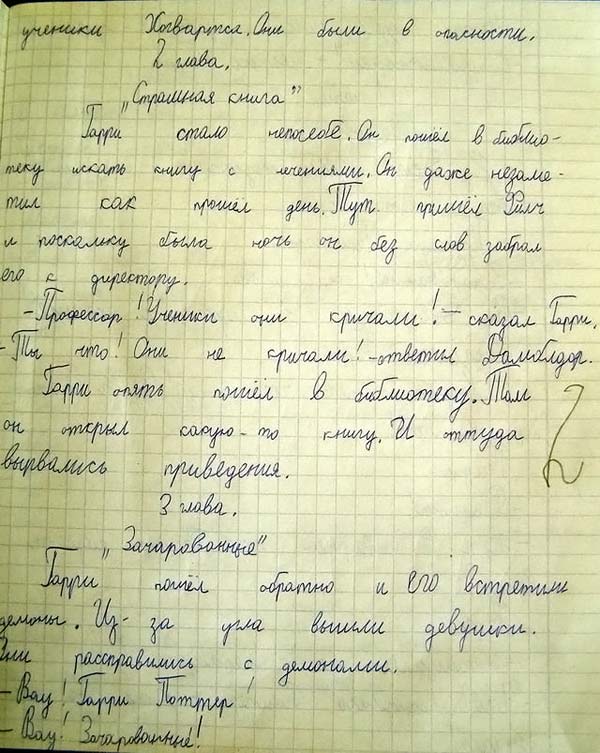 ученики Хогвартса. Они были в опасности.
2 глава.
„Страшная книга”
Гарри стало непосебе. Он пошёл в библио-
теку искать книгу с лечениями. Он даже незаме-
тил как прошёл день. Тут пришёл Филч
и поскальку была ночь он без слов забрал
его к директору.
- Профессор! Ученики они кричали! - сказал Гарри.
- Ты что! Они не кричали! - ответил Дамоблдор.
Гарри опять пошёл в библиотеку. Там
он открыл какую-то книгу. И оттуда
вырвались приведения.
3 глава.
„Зачарованные”
Гарри пошёл обратно и его встретили
демоны. Из-за угла вышли девушки.
Они расправились с демонами.
- Вау! Гарри Поттер!
- Вау! Зачарованные!